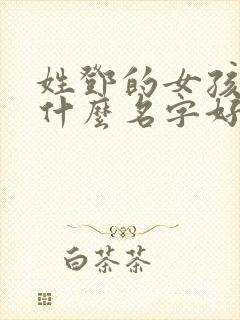 姓鄧的女孩
什麼名字好
白茶茶